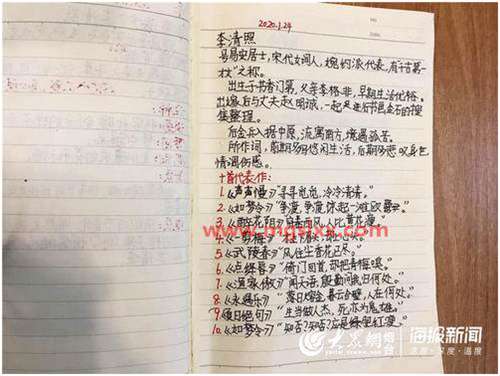 2020.1.24
李清照
号易安居士,宋代女词人,婉约派代表,有"千古第一
才女"之称。
出生于书香门第,父亲李格非,早期生活优裕。
出嫁后与丈夫赵明诚,一起走进于书画金石的搜
集整理。
后金兵入据中原,流寓南方,境遇孤苦。
所作词,前期多写悠闲生活,后期多悲叹身世
情调伤感。
十首代表作:
1.《声声慢》"寻寻觅觅,冷冷清清。"
2.《如梦令》"争渡,争渡,惊起一滩欧鹭。"
3.《醉花阴》西风,人比黄花瘦。
4.《一剪梅》
5.《武陵春》"风住尘香花已尽。"
6.《点绛唇》"倚门回首,却把青梅嗅。"
7.《渔家傲》"闻天语,殷勤问我归何处。"
8.《永遇乐》"落日熔金,暮云合璧,人在何处。"
9.《夏日绝句》"生当做人杰,死亦为鬼雄。"
10.《如梦令》"知否?知否?应是绿肥红瘦。"
www.mgslxx.com
大众网 海报新闻